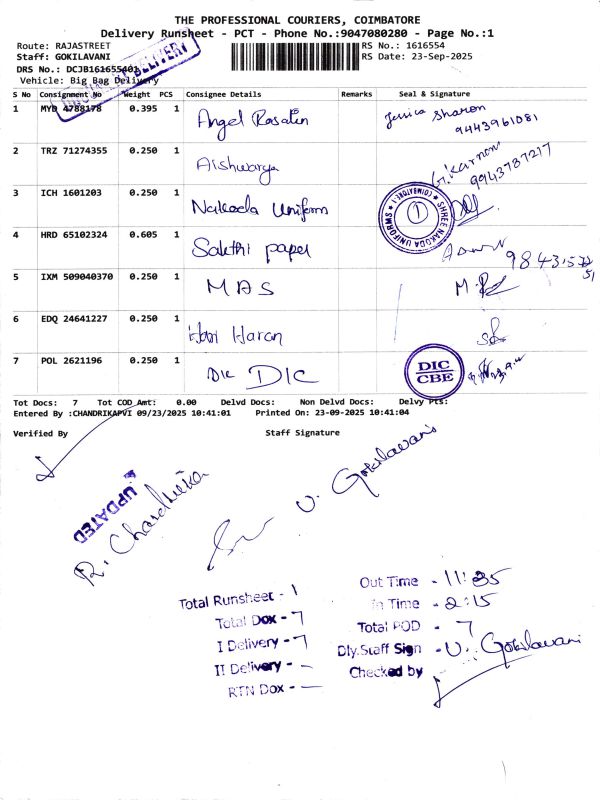 THE PROFESSIONAL COURIERS, COIMBATORE
Delivery Runsheet - PCT - Phone No.:9047080280 - Page No.:1
Route: RAJASTREET
RS No.: 1616554
Staff: GOKILAVANI
RS Date: 23-Sep-2025
DRS No.: DCJB161655401
Vehicle: Big Bag Delivery
S No Consignment No Weight PCS Consignee Details Remarks Seal & Signature
1 MYD 4788178 0.395 1 Angel Rosalin Jessica Sharon
9443961081
2 TRZ 71274355 0.250 1 Aishwarya
9943787217
3 ICH 1601203 0.250 1 Nakoda Uniform
SHREE NAKODA UNIFORMS
(COIMBATORE-1)
4 HRD 65102324 0.605 1 Sakthi paper
5 IXM 509040370 0.250 1 MAS
6 EDQ 24641227 0.250 1 Hari Haran
7 POL 2621196 0.250 1 DIC DIC
DIC
CBE
Tot Docs: 7 Tot COD Amt: 0.00 Delvd Docs: Non Delvd Docs: Delvy Pts:
Entered By :CHANDRIKAPVI 09/23/2025 10:41:01 Printed On: 23-09-2025 10:41:04
Verified By Staff Signature
UPDATED
R. Chandrika
V. Gokilavani
Total Runsheet - 1
Total Dox - 7
I Delivery - 7
II Delivery - -
RTN Dox - -
Out Time - 11:35
In Time - 2:15
Total POD - 7
Dly.Staff Sign - V. Gokilavani
Checked by